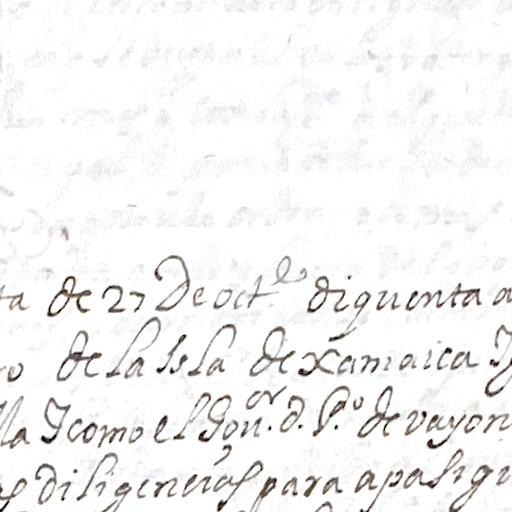 ta de 27 De octe. di quenta a
ro de la Isla de Xamaica Y
lla Y como el Gor. d. Po. de vayon
as diligencias para apasigu